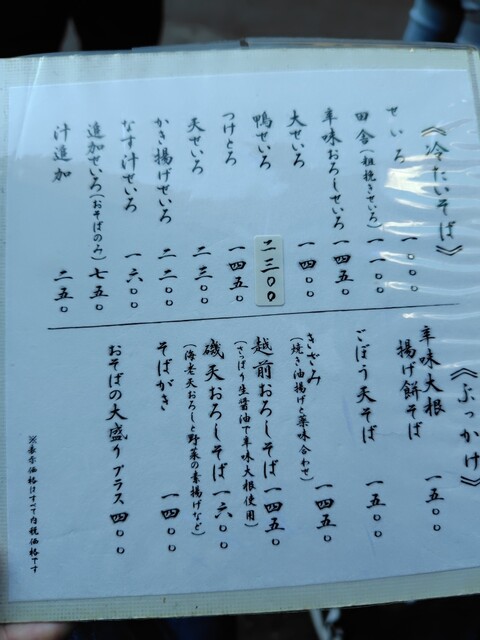 《冷たいそば》
せいろ 一〇〇〇
田舎(粗挽きせいろ) 一一〇〇
辛味おろしせいろ 一四五〇
大せいろ 一四〇〇
鴨せいろ 二三〇〇
つけとろ 一四五〇
天せいろ 二三〇〇
かき揚げせいろ 二二〇〇
なす汁せいろ 一六〇〇
追加せいろ(おそばのみ) 七五〇
汁追加 二五〇
《ぶっかけ》
辛味大根
揚げ餅そば 一五〇〇
ごぼう天そば 一五〇〇
きざみ 一四五〇
(焼き油揚げと薬味合わせ)
越前おろしそば 一四五〇
(さっぱり生醤油で辛味大根使用)
磯天おろしそば 一六〇〇
(海老天おろしと野菜の素揚げなど)
そばがき 一四〇〇
おそばの大盛り プラス 四〇〇
※表示価格はすべて内税価格です